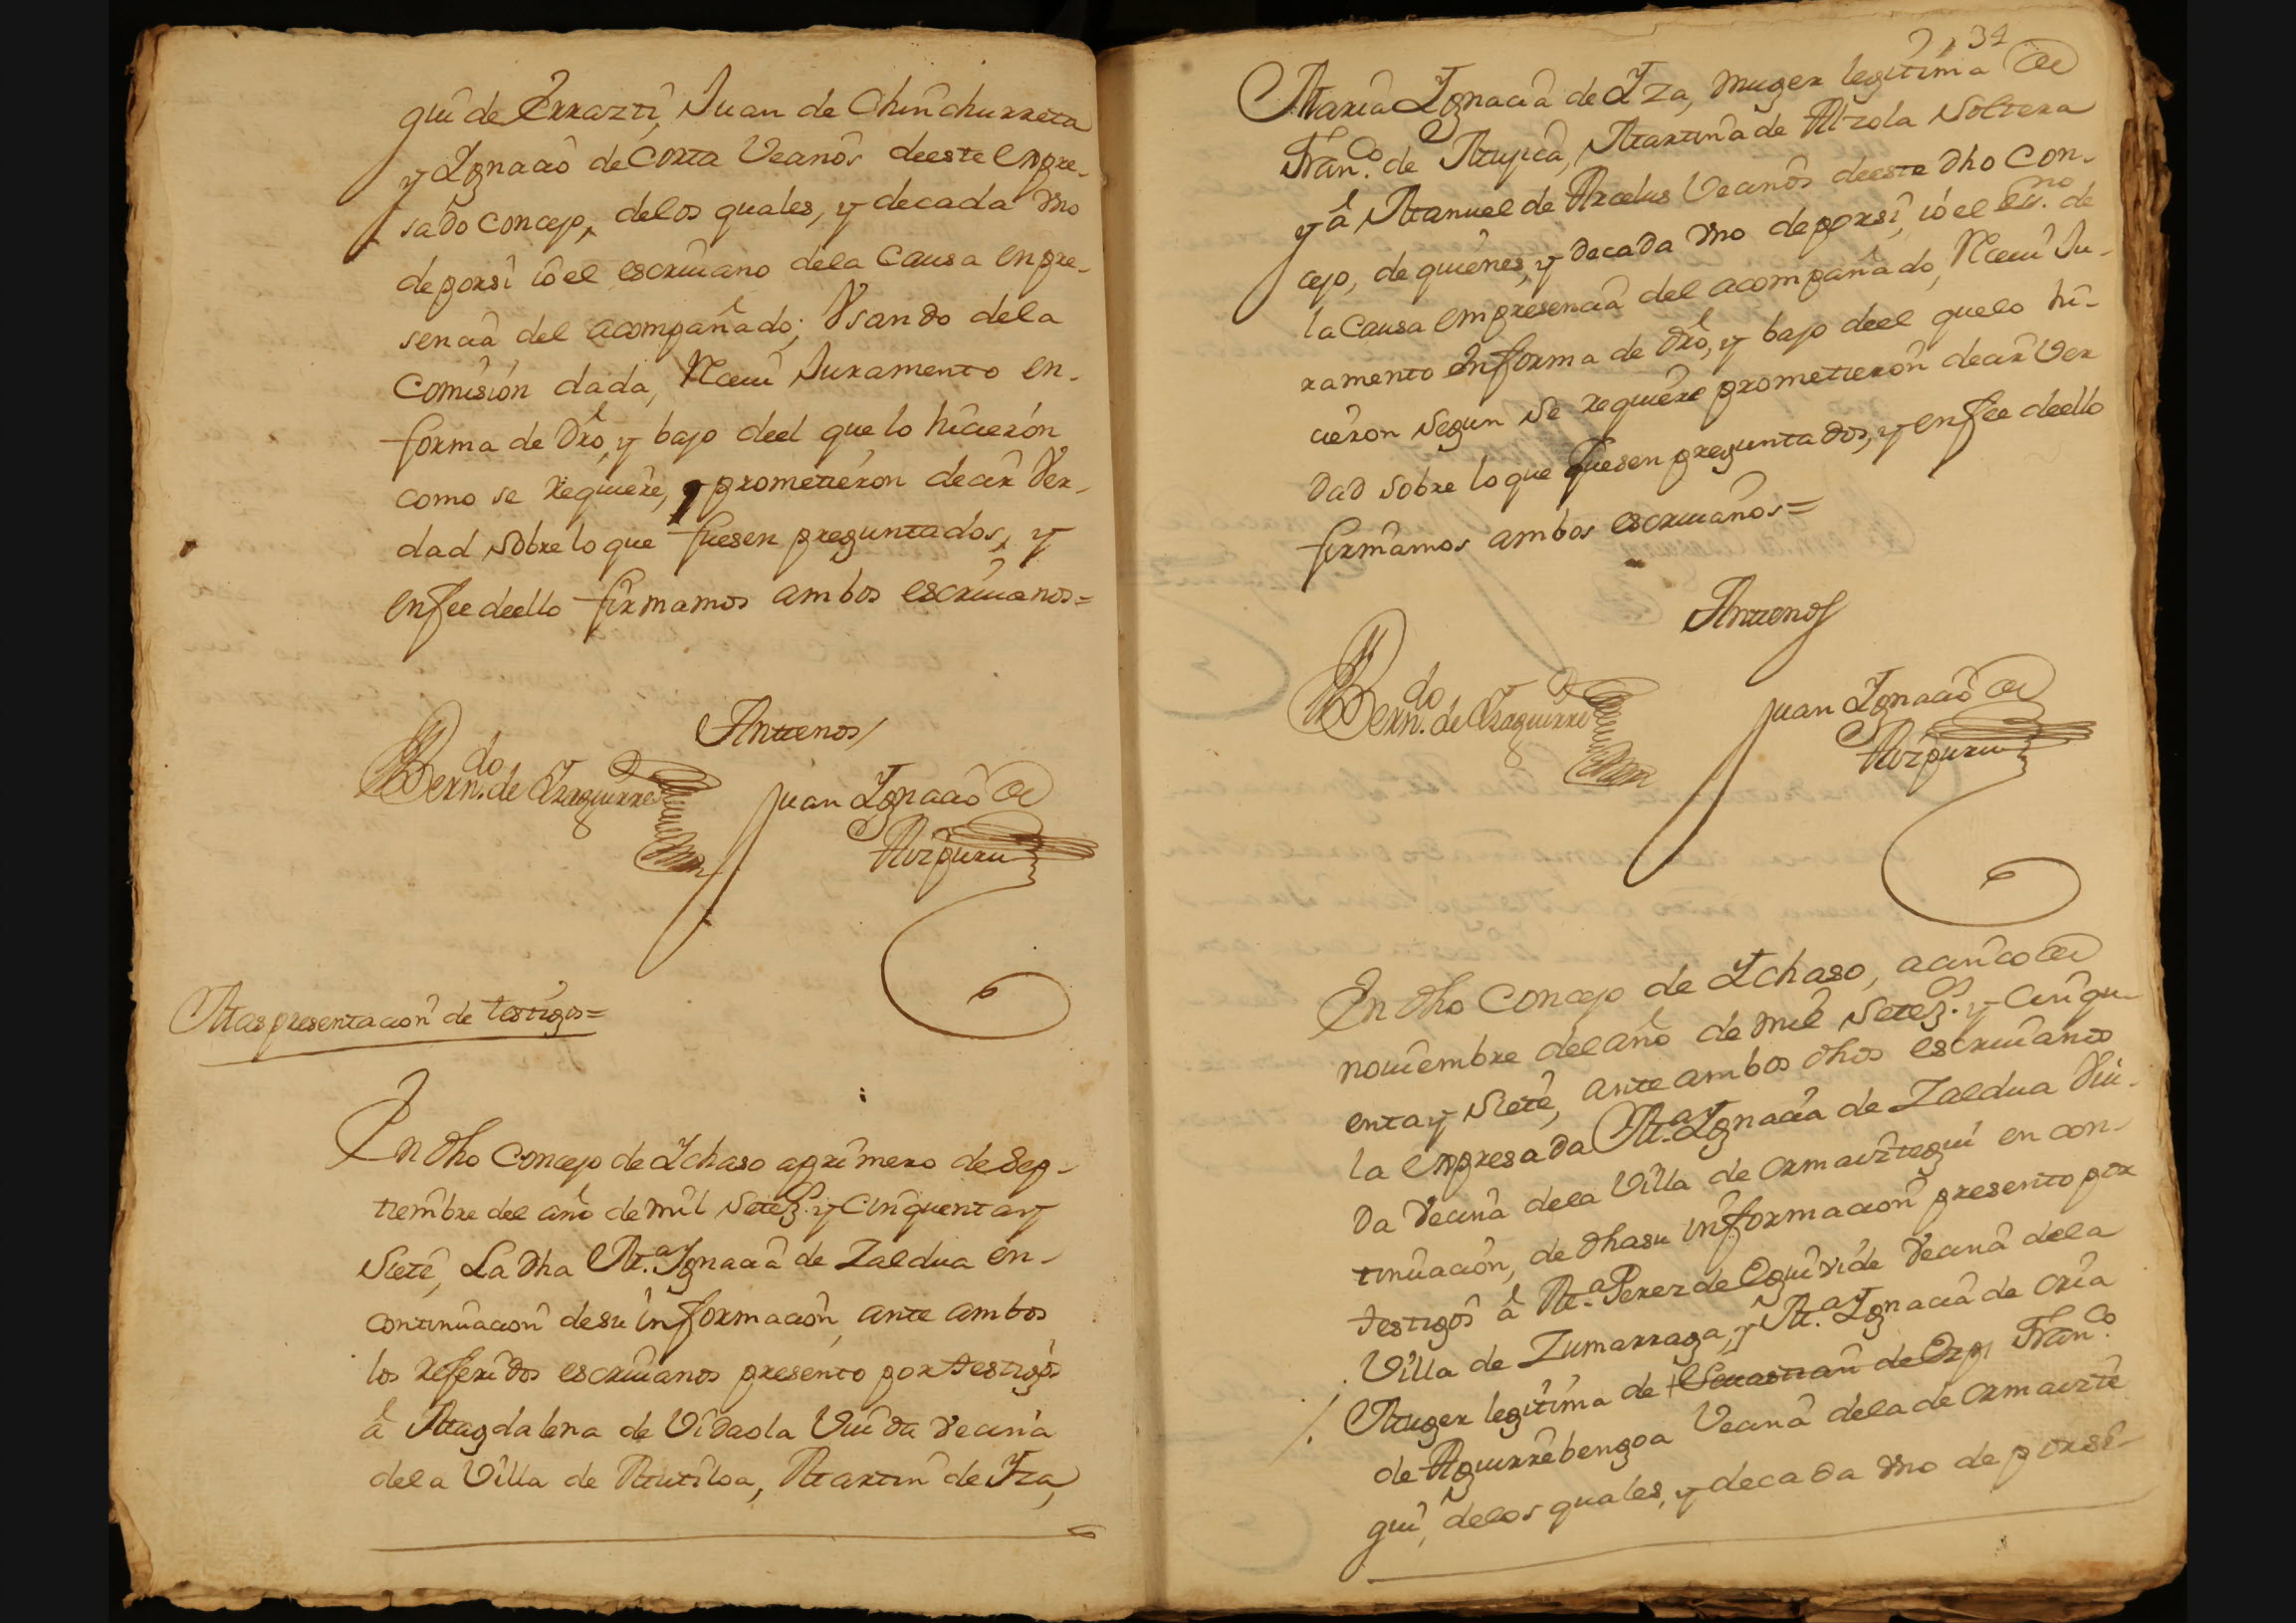 gui de Errazti, Juan de Chinchurreta
y Ygnacio de Corta Vecinos de este expre-
sado Concejo, delos quales, y decada Vno
de porsi io el escriuano dela Causa en pre-
sencia del acompañado; Vsando dela
Comisión dada, Reciui Juramento en-
forma de Dro, y bajo deel que lo hicierón
como se requiere, y prometierón decir Ver-
dad sobre lo que fuesen preguntados, y
enfee deello firmamos ambos escriuanos=
Antenos
Bern.do de Yraguirre
Juan Ygnacio de
Aizpuru
Mas presentación de testigos=
En dho Concejo de Ychaso a primero de Sep-
tiembre del año de mil Setez.s y Cinquenta y
Siete, La dha M.a Ygnacia de Zaldua en-
continuacion de su información, ante ambos
los referidos escriuanos presento por testigos
à Magdalena de Vidaola Viuda Vecina
de la Villa de Mutiloa, Martin de Yza,
34
Maria Ygnacia de Yza, muger legitima de
Fran.co de Mugica, Martina de Alzola Soltera
y à Manuel de Arcelus Vecinos deeste dho Con-
cejo, de quiénes, y decada Vno deporsi, io el Es.no de
la Causa en presencia del acompañado, Reciui Ju-
ramento en forma de Dro, y bajo deel quelo hi-
cieron segun se requiere prometierón decir Ver
dad sobre lo que fuesen preguntados, y enfee deello
firmamos ambos escriuanos=
Antenos
Bern.do de Yraguirre
Juan Ygnacio de
Aizpuru
En dho Concejo de Ychaso, a cinco de
nouiembre del año de mil Setez.s y Cinqu-
enta y Siete, ante ambos dhos escriuanos
la expresada M.a Ygnacia de Zaldua Viu-
da Vecina dela Villa de Ormaiztegui en con-
tinuación, de dha su información presento por
testigos à M.a Perez de Eguiuide Vecina dela
Villa de Zumarraga, y M.a Ygnacia de Oria
Muger legitima de Seuastian de Fran.co
de Aguirrebengoa Vecina dela de Ormaizte
gui, delos quales, y decada Vno de porsi-